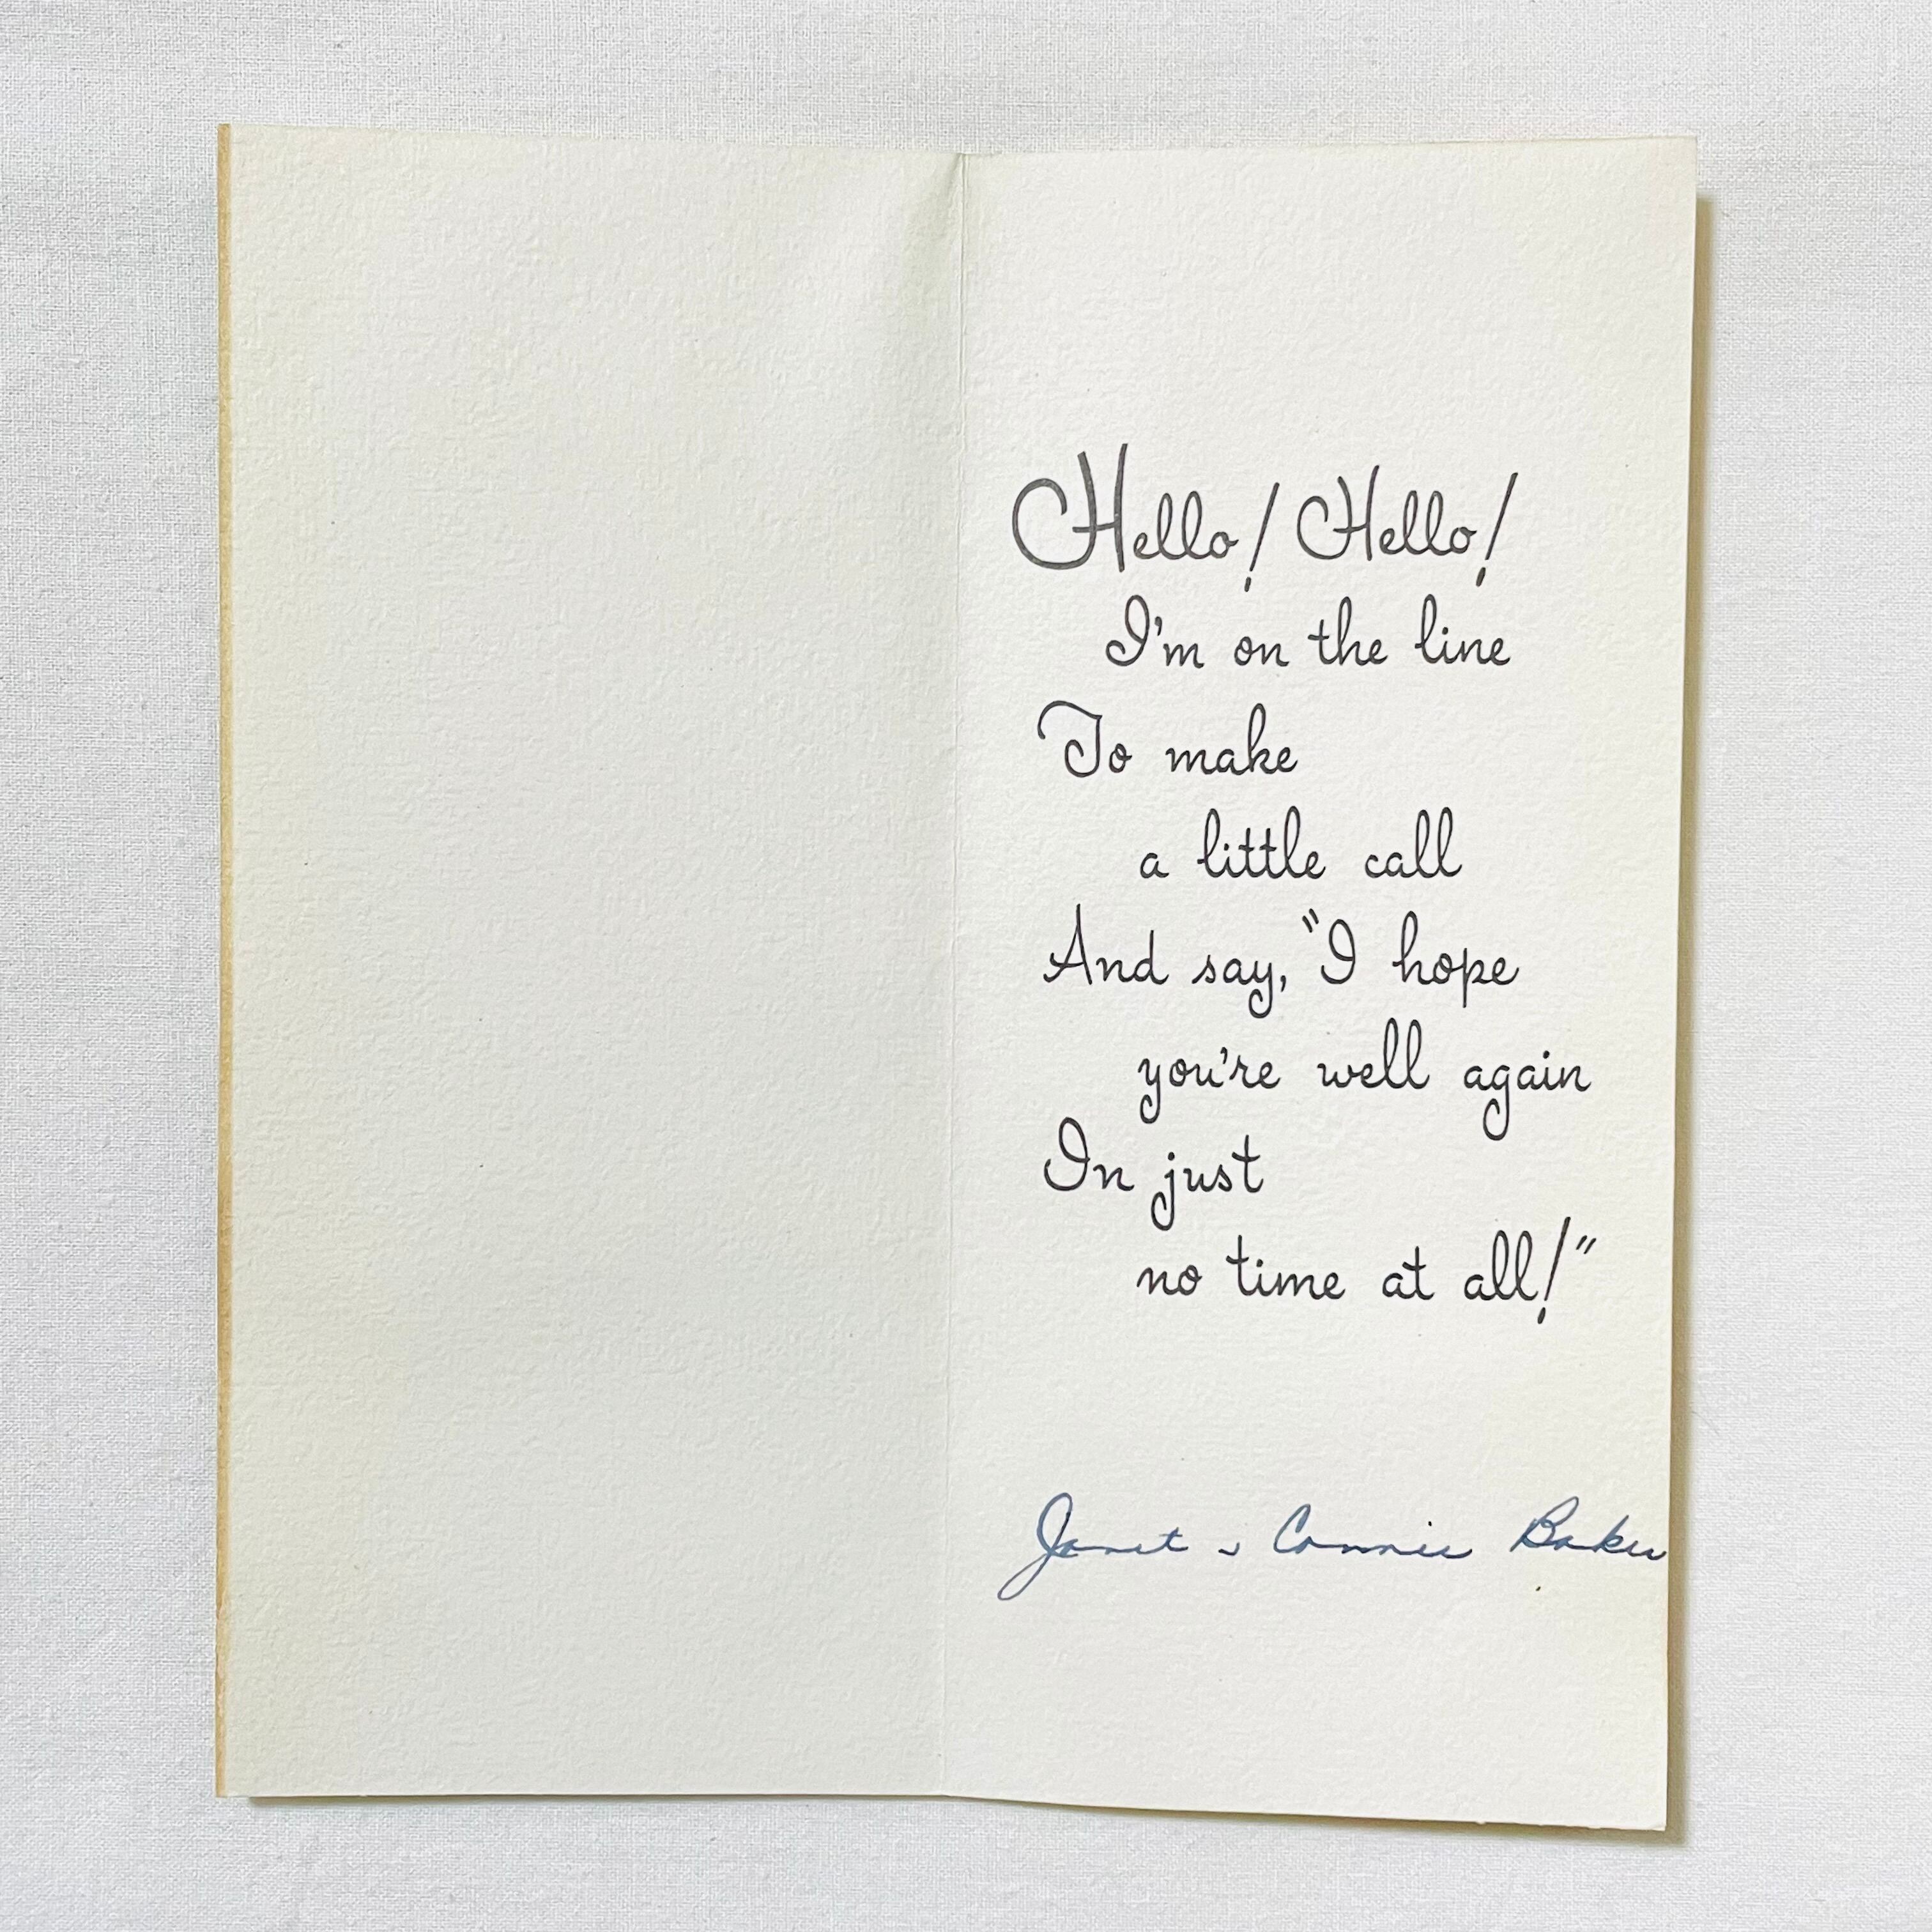 Hello! Hello!
I'm on the line
To make
a little call
And say, "I hope
you're well again
In just
no time at all!"
Janet & Connie Baker